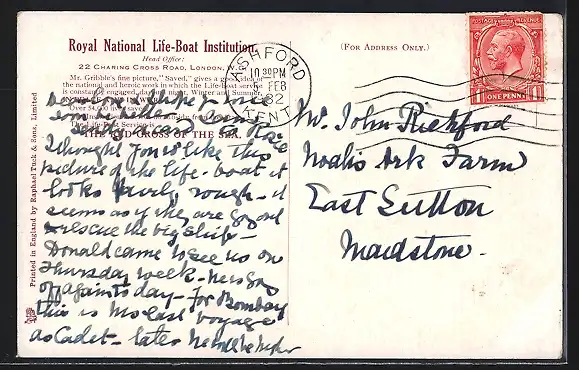 Royal National Life-Boat Institution.
Head Office:
22 CHARING CROSS ROAD, LONDON, W.C.
Mr. Gribble's fine picture, "Saved," gives a good idea of
the national and heroic work in which the Life-boat service
is constantly engaged, day and night, Winter and Summer.
Over 54,000 lives saved
The Life-Boat Service is
"THE RED CROSS OF THE SEA."
I thought you'd like this
picture of the life-boat it
looks fairly rough - it
seems as if they are going
rescue the big ship -
Donald came to see us on
Thursday week - he is going
off again to day - for Bombay
this is his last voyage
as Cadet - later he will be higher
Printed in England by Raphael Tuck & Sons, Limited
(FOR ADDRESS ONLY.)
ASHFORD
10 30PM
FEB
32
KENT
POSTAGE REVENUE
1 ONE PENNY 1
Mr. John Rickford
Noah's Ark Farm
East Sutton
Maidstone.